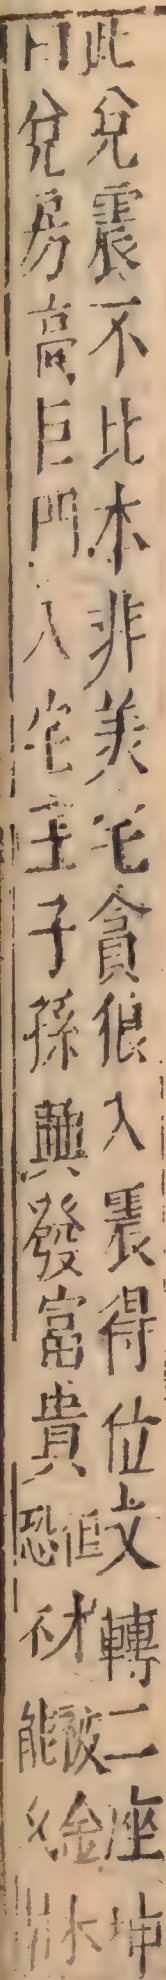 此兌震不比本非美宅貪狼入震得位文轉二座坤
曰兌房高巨門入宅主子孫興發富貴但木被金
恐不能久